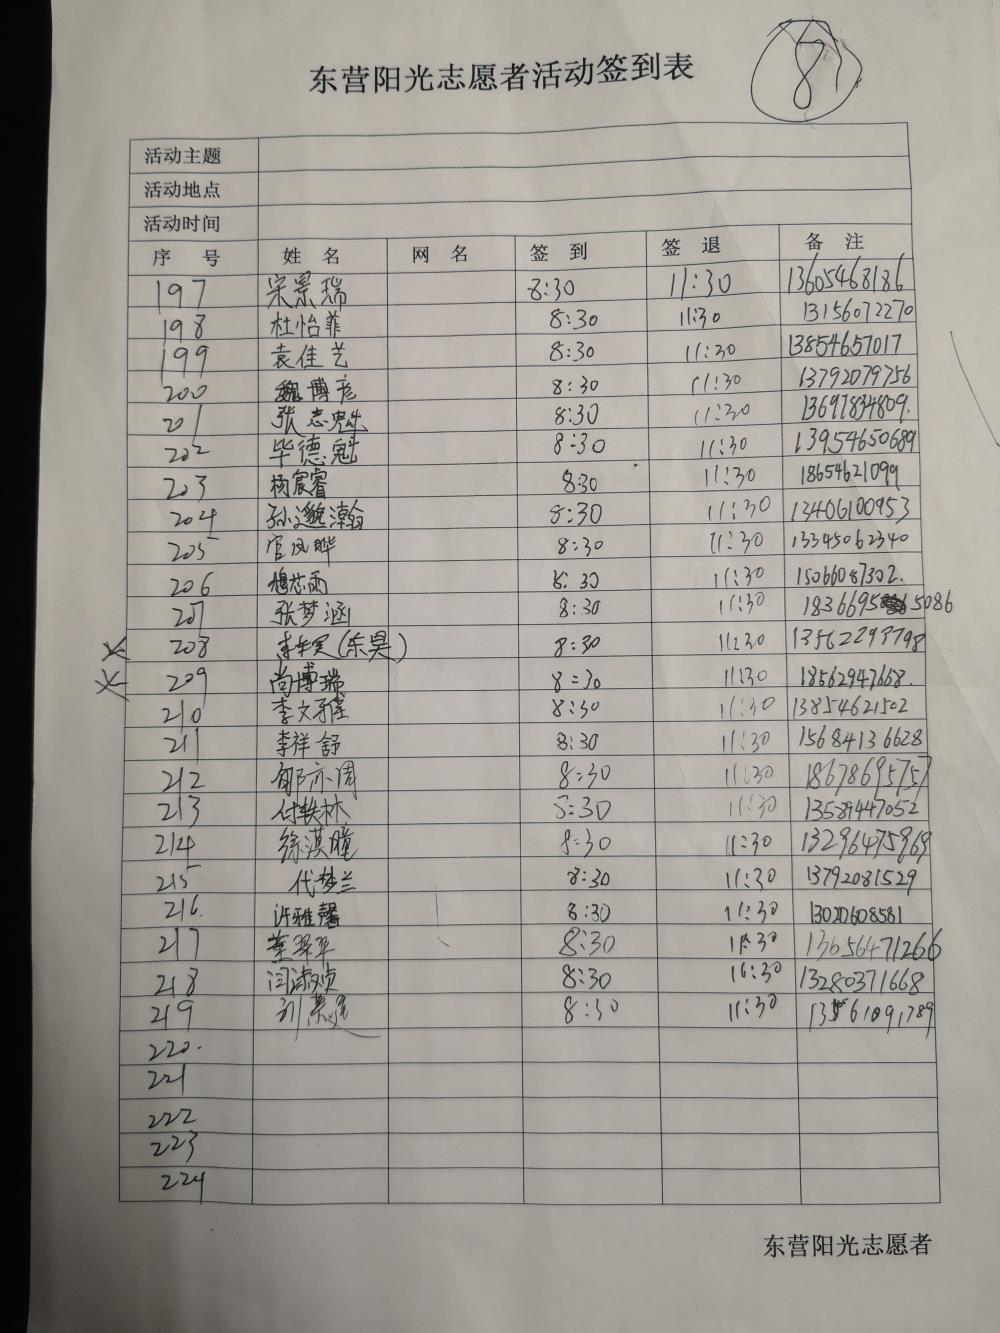 东营阳光志愿者活动签到表
8
活动主题
活动地点
活动时间
序 号 姓 名 网 名 签 到 签 退 备 注
197 宋景瑞 8:30 11:30 13605468186
198 杜怡菲 8:30 11:30 13156072270
199 袁佳艺 8:30 11:30 13854657017
200 魏博彦 8:30 11:30 13792079756
201 张志魁 8:30 11:30 13697834809.
202 毕德魁 8:30 11:30 13954650689
203 杨宸睿 8:30 11:30 18654621099
204 孙邈瀚 8:30 11:30 13406100953
205 官凤晔 8:30 11:30 13345062340
206 穆芯雨 8:30 11:30 15066087302.
207 张梦涵 8:30 11:30 18366955086
208 (东昊) 8:30 11:30 13562297798
209 尚博瑞 8:30 11:30 18562947668.
210 李文瑾 8:30 11:30 13854621502
211 李祥舒 8:30 11:30 15684136628
212 郇亦周 8:30 11:30 18678695757
213 付轶林 8:30 11:30 13589447052
214 徐淇瞳 8:30 11:30 13296475969
215 代梦兰 8:30 11:30 13792081529
216. 许雅馨 8:30 11:30 13020608581
217 葉翠平 8:30 11:30 13656471266
218 闫淑贞 8:30 16:30 13280371668
219 刘 8:30 11:30 13561091789
220.
221
222
223
224
东营阳光志愿者